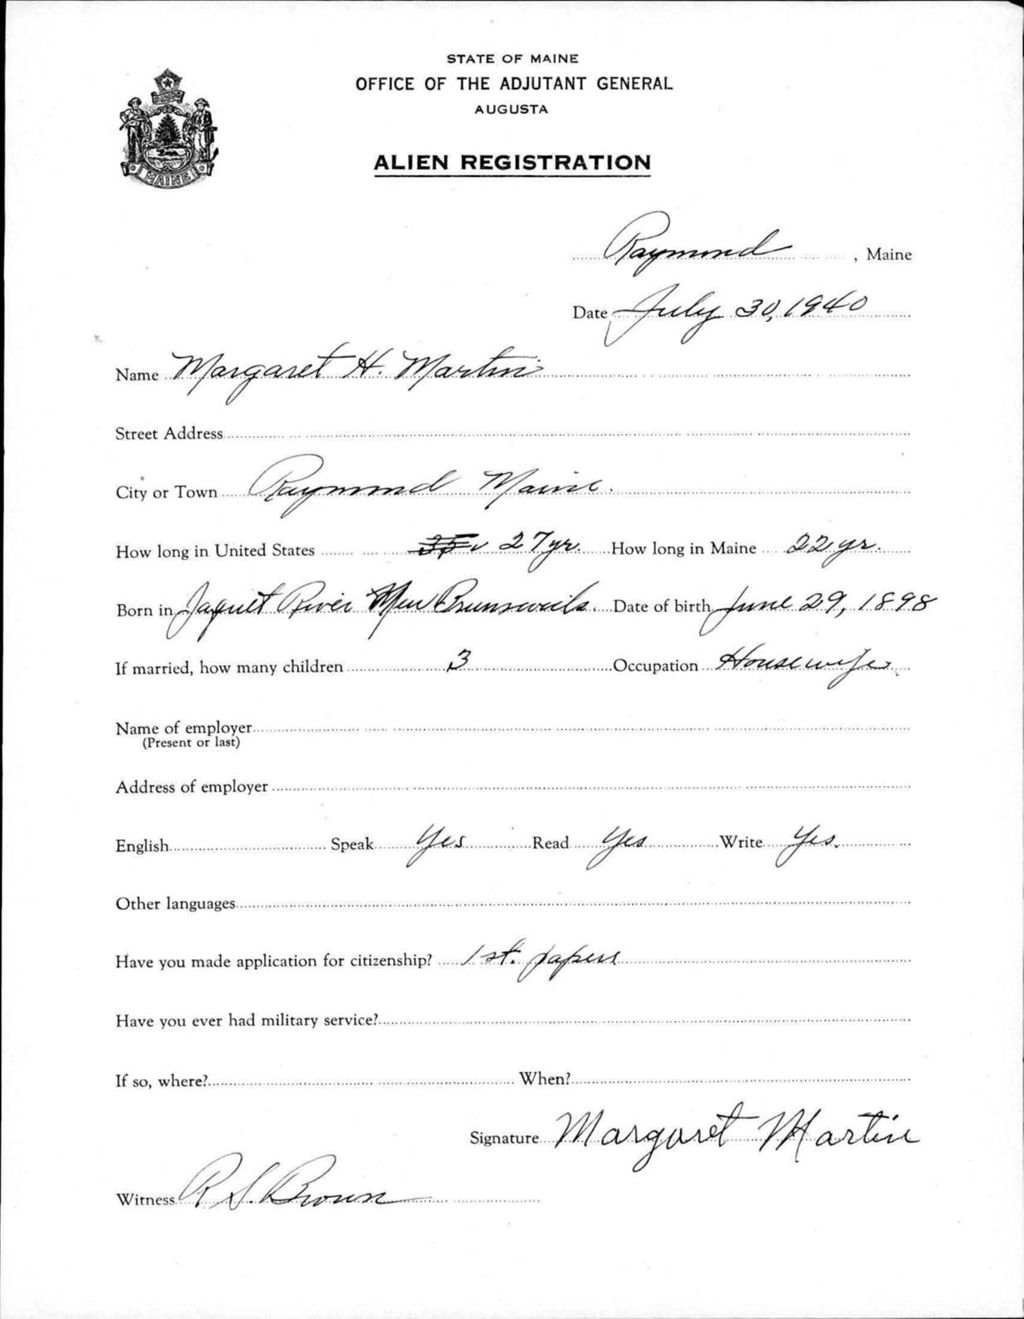 STATE OF MAINE
OFFICE OF THE ADJUTANT GENERAL
AUGUSTA
ALIEN REGISTRATION
MAINE
Raymond, Maine
Date July 30, 1940
Name Margaret H. Martin
Street Address
City or Town Raymond Maine.
How long in United States 27 yr. How long in Maine 22 yr.
Born in Jaquet River New Brunswick. Date of birth June 29, 1898
If married, how many children 3 Occupation Housewife
Name of employer
(Present or last)
Address of employer
English Speak Yes Read Yes Write Yes.
Other languages
Have you made application for citizenship? 1st. papers
Have you ever had military service?
If so, where? When?
Signature Margaret Martin
Witness R. S. Brown